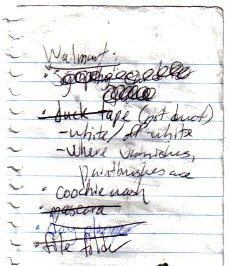 Walmart:
duck tape (get duct)
-white/off-white
-where varnishes,
paintbrushes are
coochie wash
mascara
file folder